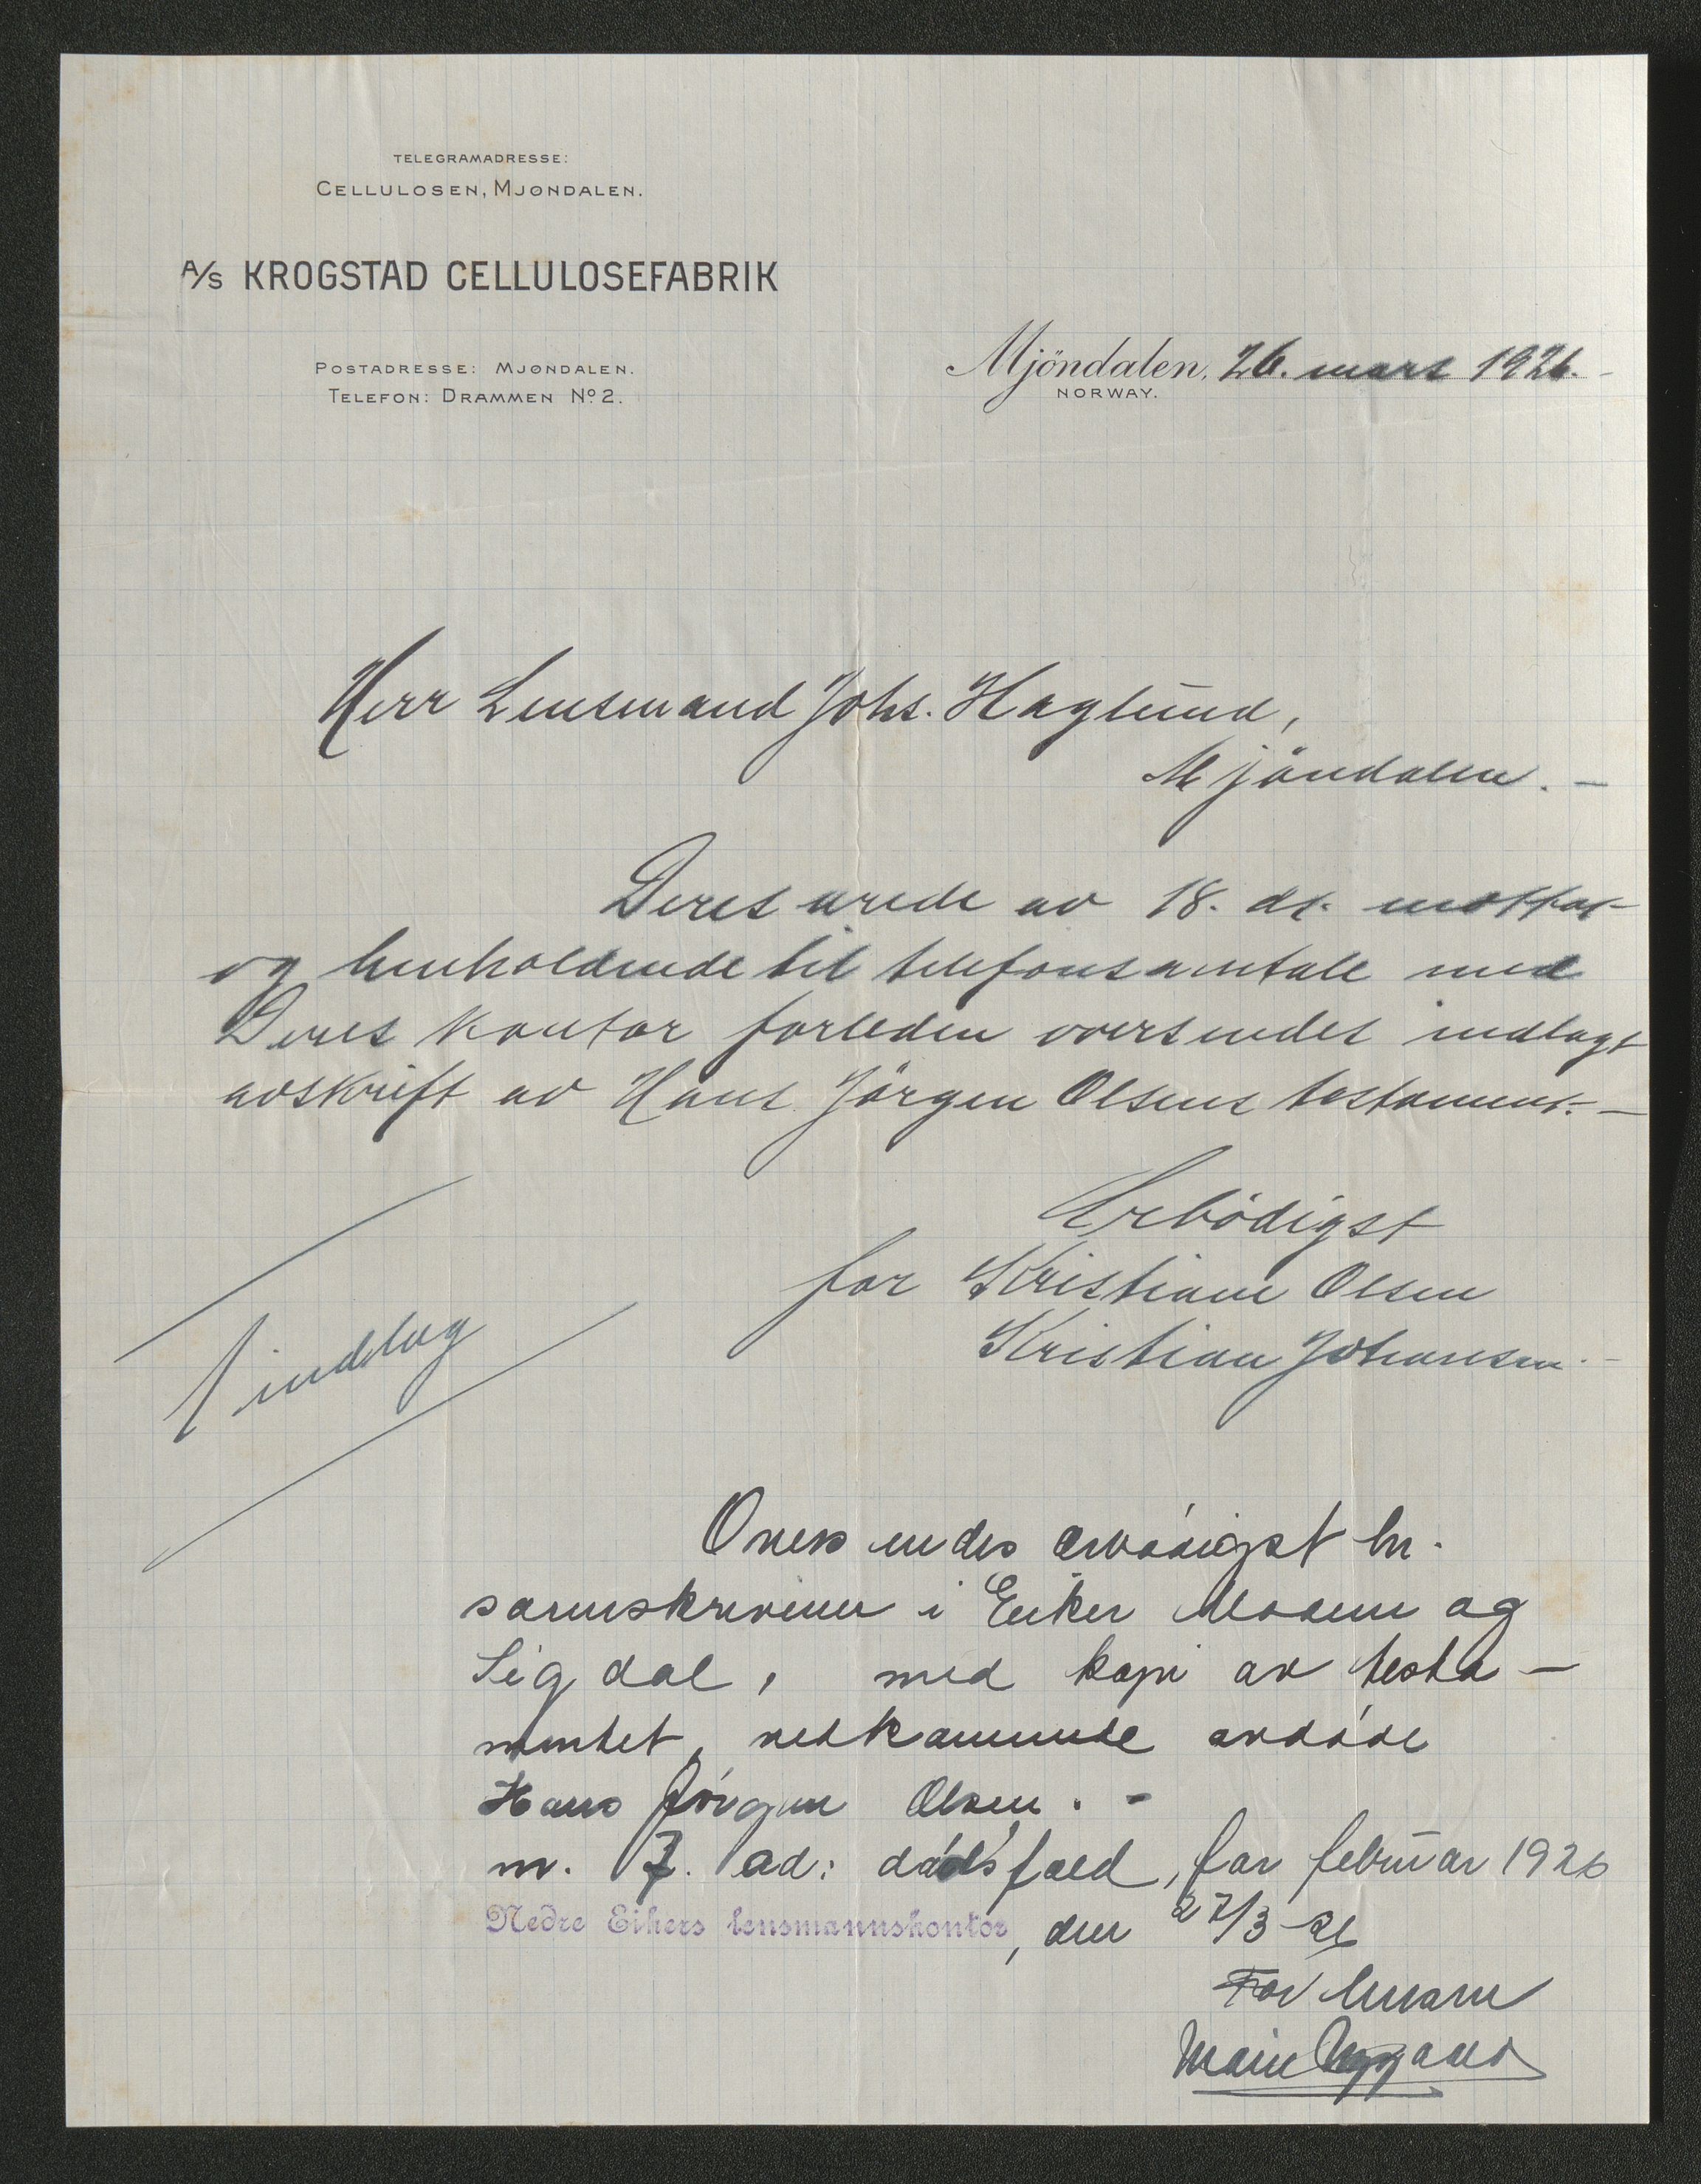 TELEGRAMADRESSE:
CELLULOSEN, MJØNDALEN.
A/S KROGSTAD CELLULOSEFABRIK
POSTADRESSE: MJØNDALEN.
TELEFON: DRAMMEN Nº 2.
Mjöndalen, 26. mars 1926.-
NORWAY.
Herr Lensmand Johs. Haglund,
Mjöndalen. -
Deres ærede av 18. ds. mottat
og henholdende til telefonsamtale med
Deres kontor forleden oversendes indlagt
avskrift av Hans Jörgen Olsens testament. -
Ærbödigst
for Kristiane Olsen
Kristian Johansen. -
1 indlag
Oversendes ærbødigst hr.
sorenskriveren i Eiker Modum og
Sigdal, med kopi av testa-
mentet, vedkommende avdøde
Hans Jørgen Olsen. -
nr. 7. ad: dødsfald, for februar 1926
Nedre Eikers lensmannskontor, den 27/3-26
For lensm